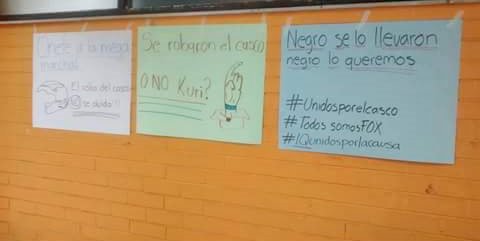 Únete a la mega
marcha!
El robo del casco
se olvida!!!
Se robaron el casco
O NO Kuri?
Negro se lo llevaron
negro lo queremos
#Unidosporelcasco
#Todos somosFOX
#IQunidosporlacausa